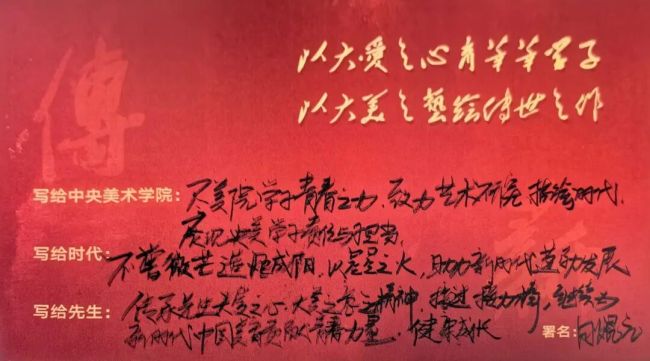 傳
以大愛之心育莘莘学子
以大美之藝绘傳世之作
写给中央美术学院：以美院学子青春之力，致力艺术研究 描绘时代，
展现央美学子责任与担当，
写给时代：不啻微芒造炬成阳，以星星之火，助力新时代蓬勃发展
写给先生：传承先生大爱之心、大美之艺之精神 接过接力棒，继续为
新时代中国美育贡献青春力量，健康成长
署名：